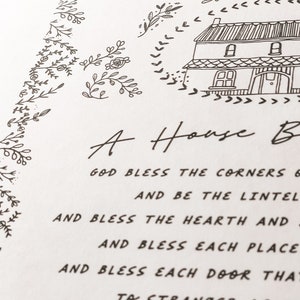 A House B
GOD BLESS THE CORNERS O
AND BE THE LINTEL
AND BLESS THE HEARTH AND
AND BLESS EACH PLACE
AND BLESS EACH DOOR THAT
TO STRANGER